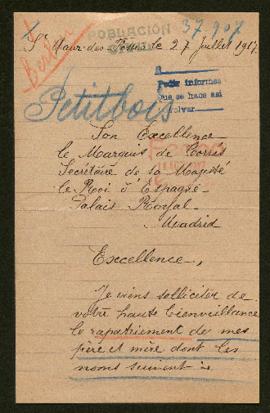 POBLACIÓN
37.907
St Maur-des-Fossés le 27 Juillet 1917.
Berlin
Pedir informes
que se hace así
Petitbois
Son Excellence
le Marquis de Torres
Secrétaire de sa Majesté
le Roi d'Espagne
Palais Royal
Madrid
Excellence,
Je viens solliciter de
votre haute bienveillance
le rapatriement de mes
père et mère dont les
noms suivent :